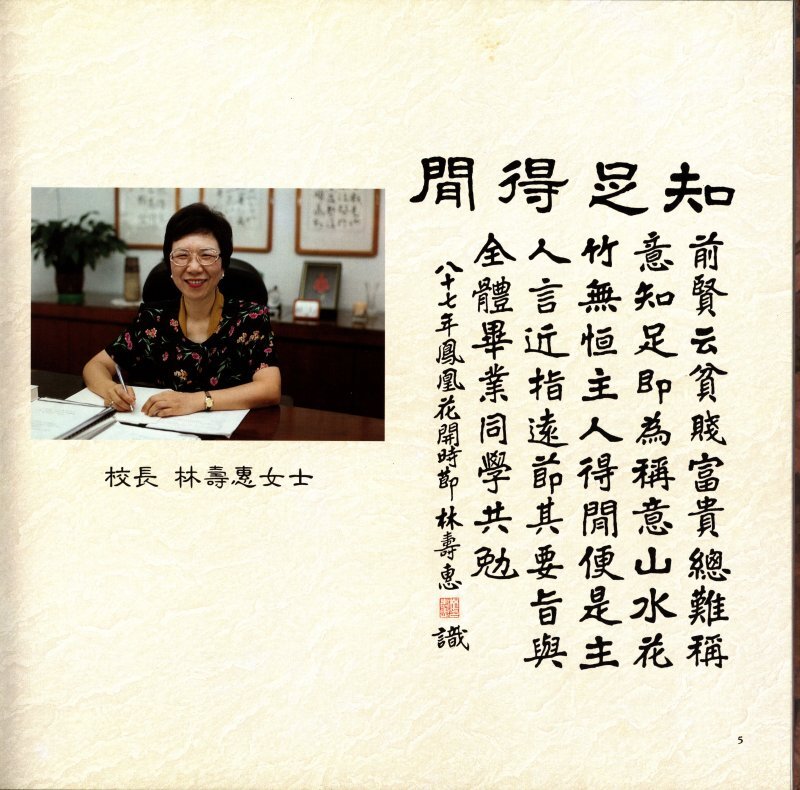 知足得閒
前賢云貧賤富貴總難稱
意知足即為稱意山水花
竹無恒主人得閒便是主
人言近指遠節其要旨與
全體畢業同學共勉
八十七年鳳凰花開時節 林壽惠 識
校長 林壽惠女士
5